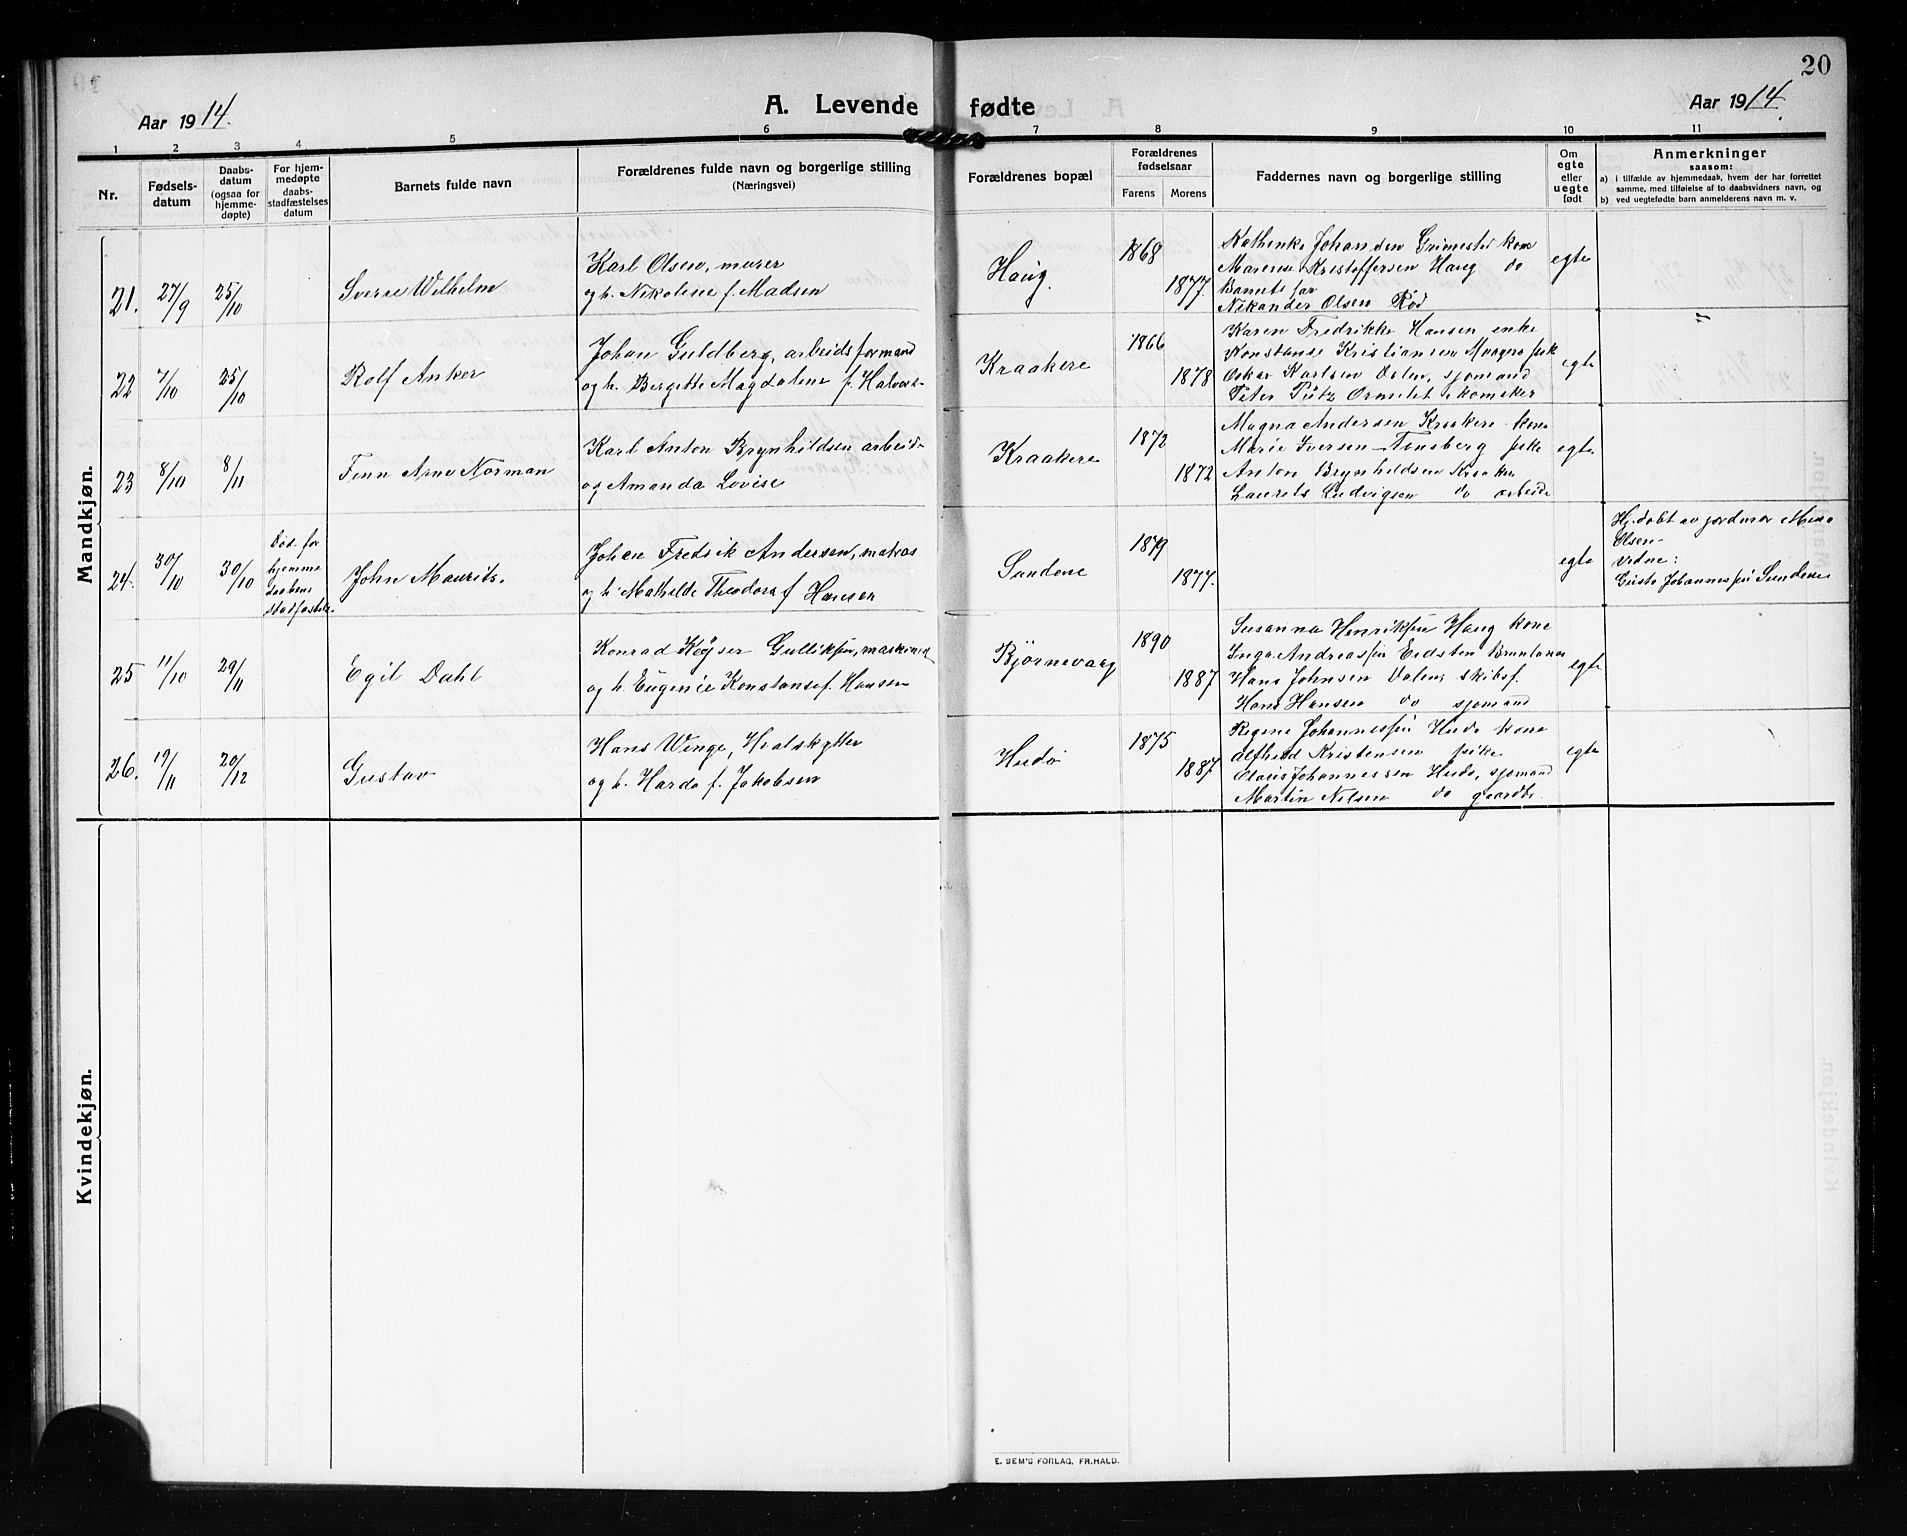 20
Aar 1914.
A. Levende fødte
Aar 1914.
1 2 3 4 5 6 7 8 9 10 11
Nr.
Fødsels-
datum
Daabs-
datum
(ogsaa for
hjemme-
døpte)
For hjem-
medøpte
daabs-
stadfæstelses
datum
Barnets fulde navn
Forældrenes fulde navn og borgerlige stilling
(Næringsvei)
Forældrenes bopæl
Forældrenes
fødselsaar
Farens Morens
Faddernes navn og borgerlige stilling
Om
egte
eller
uegte
født
Anmerkninger
saasom:
a) i tilfælde av hjemmedaab, hvem der har forrettet
samme, med tilføielse af to daabsvidners navn, og
b) ved uegtefødte barn anmelderens navn m. v.
Mandkjøn.
21. 27/9 25/10
Sverre Wilhelm
Karl Olsen, murer
og h. Nikoline f. Madsen
Haug.
1868
1877.
Kathinka Johansen Grimestad kone
Marense Kristoffersen Haug do
Barnets far
Nikander Olsen Rød
egte
22 7/10 25/10
Rolf Anker
Johan Guldberg, arbeidsformand
og h. Bergitte Magdalene f. Halvor-
Kraakere
1866
1878
Karen Fredrikke Hansen enke
Konstanse Kristiansen
Oskar Karlsen Dalen, sjømand
Peter Pütz Ormelet skomaker
egte
"
23 8/10 8/11
Finn Arne Norman
Karl Anton Brynhildsen arbeid-
og Amanda Lovise
Kraakere
1872
1872
Magna Andersen Kraakere kone
Marie Iversen Tønsberg pike
Anton Brynhildsen Kraakere
Laurits Ludvigsen do arbeide
egte
24. 30/10 30/10
Død for
hjemme
daabens
stadfæstelse
John Maurits.
Johan Fredrik Andersen, matros
og h. Mathilde Theodora f Hansen
Sundene
1879
1877.
egte
Hj.døbt av jordmor
Olsen
vidne:
Johannessen Sundene
25 11/10 29/11
Egil Dahl
Konrad Keyser Gulliksen, maskinist
og h. Eugenie Konstanse f. Hansen
Bjørnevaag
1890
1887
Susanna Henriksen Haug kone
Inga Andreassen Eidsten Brunlanes
Hans Johnsen Dalen skibsf.
Hans Hansen do sjømand
egte
26. 19/11 20/12
Gustav
Hans Winge, Hvalskytter
og h. Harda f. Jakobsen
Hudø
1875
1887
Regine Johannessen Hudø kone
Alfhild Kristensen pike
Claus Johannessen Hudø, sjømand
Martin Nilsen do gaardbr.
egte
Kvindekjøn.
E. SEM'S FORLAG, FR.HALD.